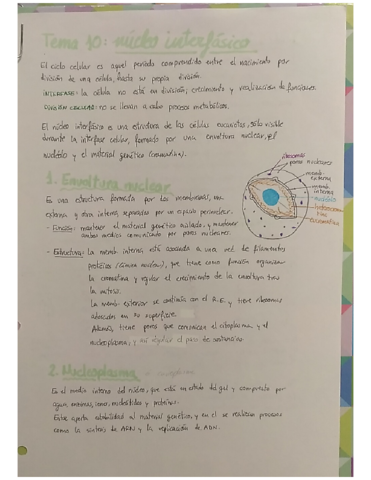 Tema 10: núcleo interfásico
El ciclo celular es aquel periodo comprendido entre el nacimiento por
división de una célula, hasta su propia división.
INTERFASE: la célula no está en división, crecimiento y realización de funciones.
DIVISIÓN CELULAR: no se llevan a cabo procesos metabólicos.
El núcleo interfásico es una estructura de las células eucariotas, sólo visible
durante la interfase celular, formado por una envoltura nuclear, el
nucléolo y el material genético (cromatina).
1. Envoltura nuclear
Es una estructura formada por dos membranas, una
externa y otra interna, separadas por un espacio perinuclear.
- Función: mantener el material genético aislado, y mantener
ambos medios comunicados por poros nucleares.
- Estructura: La membr interna está asociada a una red de filamentos
proteicos (lámina nuclear), que tiene como función organizar
la cromatina y regular el crecimiento de la envoltura tras
la mitosis.
La membr exterior se continúa con el R.E. y tiene ribosomas
adosados en su superficie.
Además, tiene poros que comunican el citoplasma y el
nucleoplasma, y así el paso de sustancias.
ribosomas
poros nucleares
membr
externa
membr
interna
nucléolo
heterocroma
tina
eucromatina
2. Nucleoplasma
Es el medio interno del núcleo, que está en estado de gel y compuesto por
agua, enzimas, iones, nucleótidos y proteínas.
Este aporta estabilidad al material genético, y en él se realizan procesos
como la síntesis de ARN y la replicación de ADN.